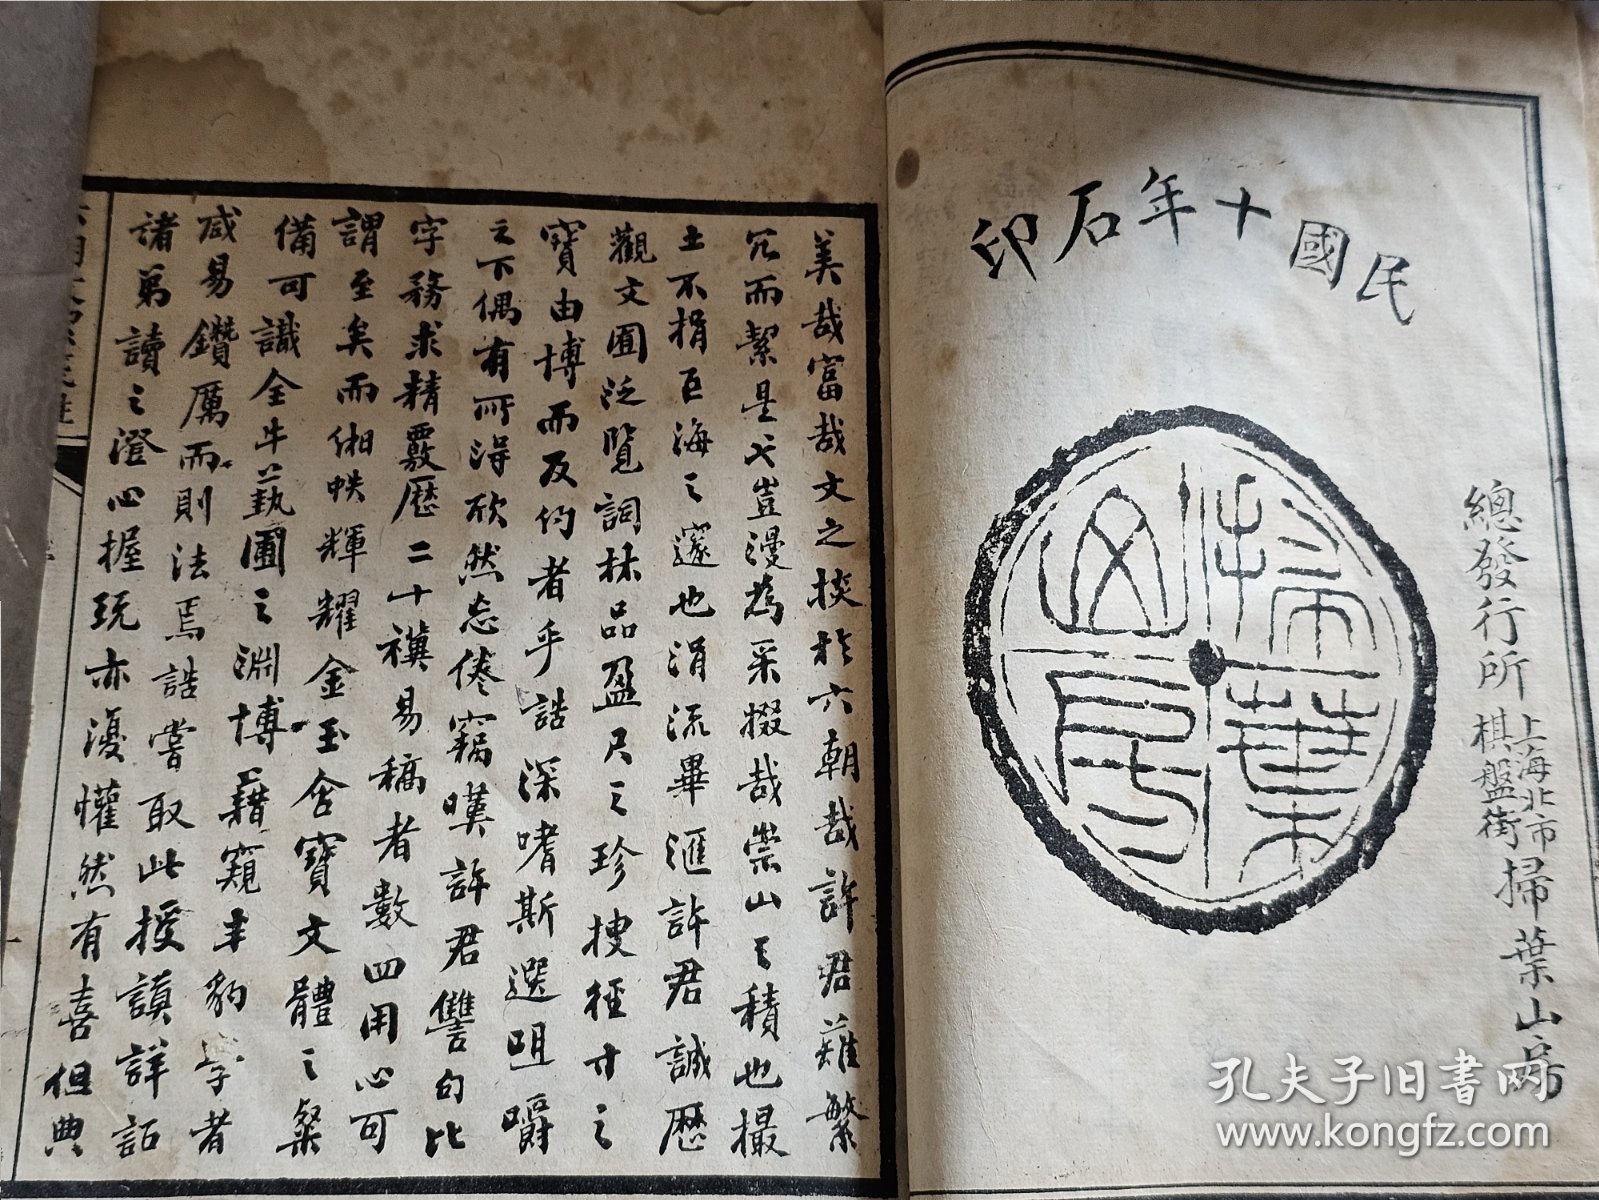 民國十年石印
掃葉山房
總發行所
上海北市
棋盤街
掃葉山房
美哉富哉文之掞於六朝哉許君薙繁
冗而絜是之豈漫爲采掇哉崇山之積也撮
土不捐巨海之邃也涓流畢滙許君誠歷
觀文囿泛覽詞林品盈尺之珍搜徑寸之
寶由博而反約者乎誥深嗜斯選咀嚼
之下偶有所得欣然忘倦竊嘆許君讐句比
字務求精覈歷二十禩易稿者數四用心可
謂至矣而緗帙輝耀金玉含寶文體之粲
備可識全牛藝圃之淵博藉窺半豹學者
咸易鑽厲而則法焉誥嘗取此授讀詳詁
諸弟讀之澄心握玩亦復懽然有喜但典
孔夫子旧书网
www.kongfz.com